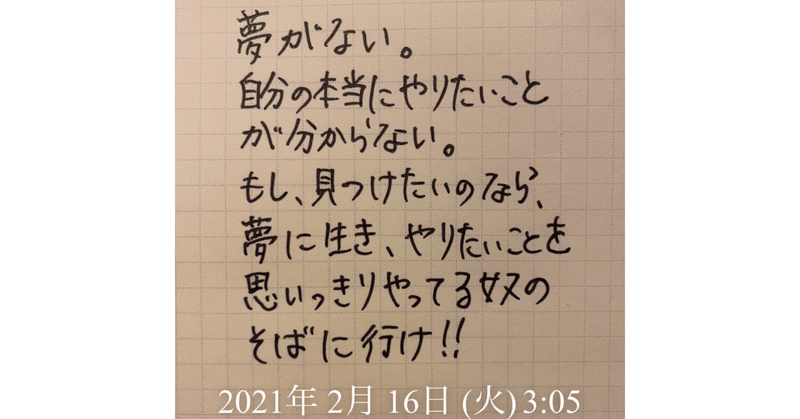 夢がない。
自分の本当にやりたいこと
が分からない。
もし、見つけたいのなら、
夢に生き、やりたいことを
思いっきりやってる奴の
そばに行け!!
2021年 2月 16日 (火) 3:05